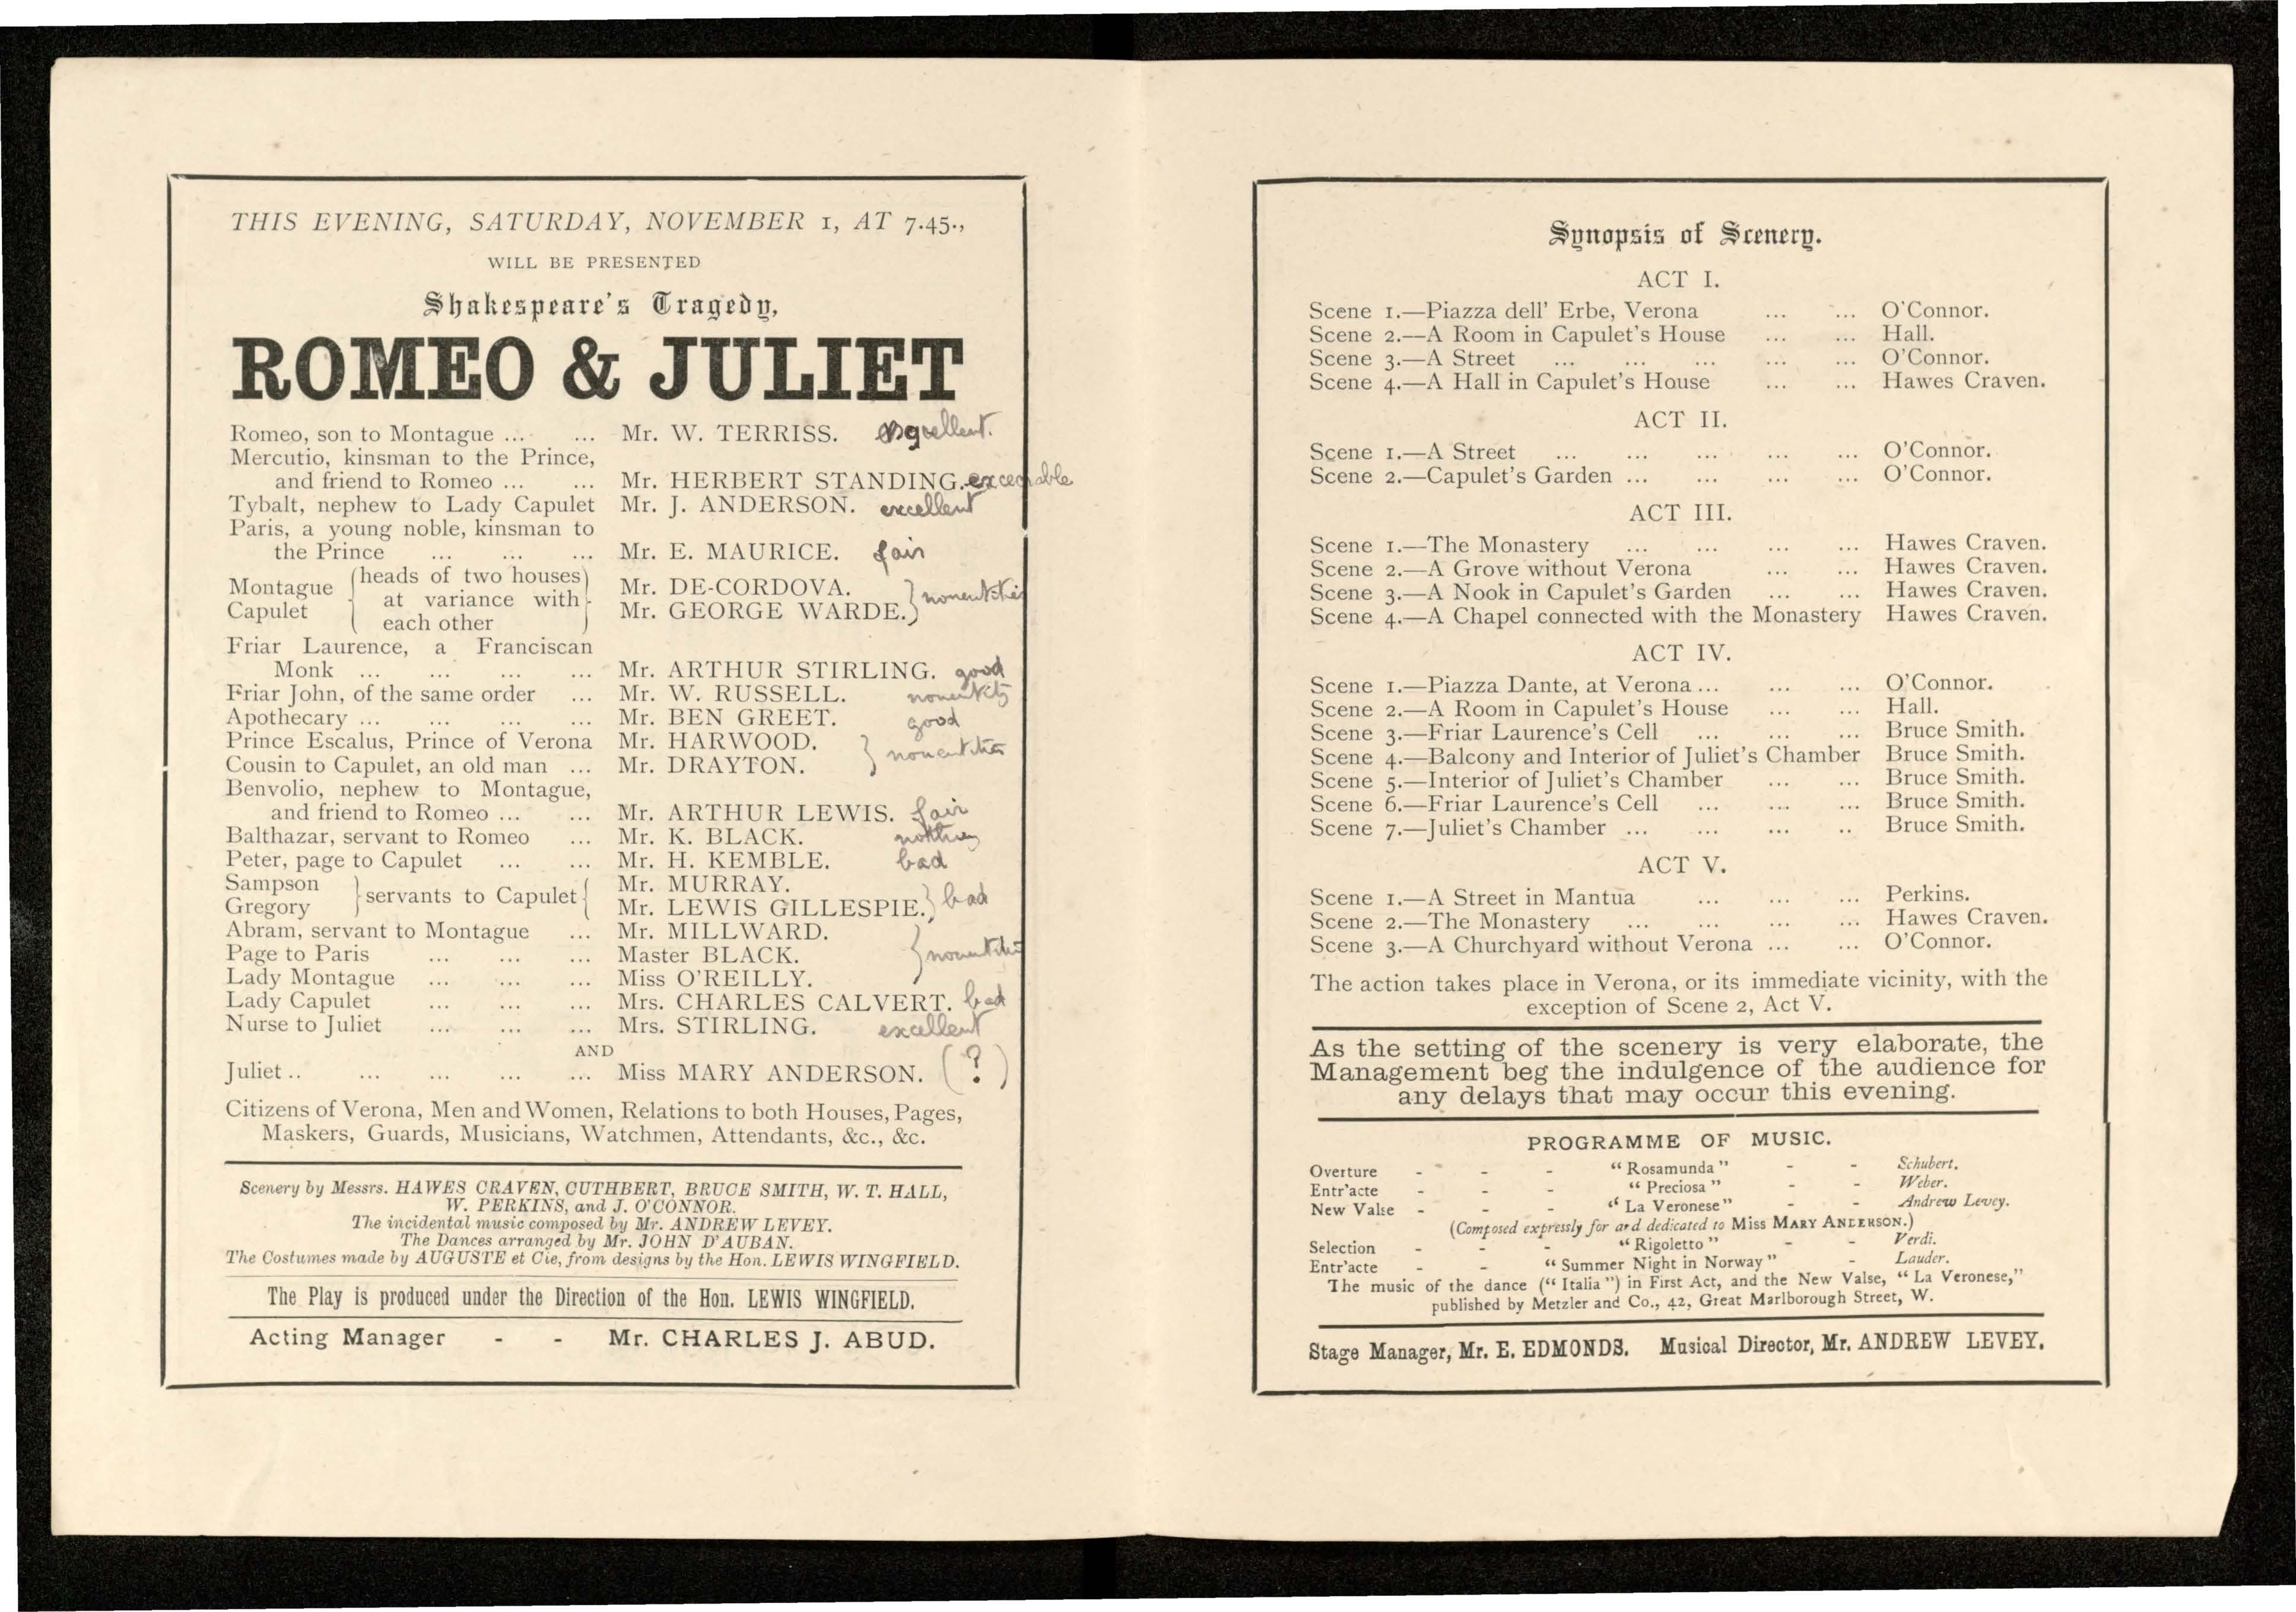 THIS EVENING, SATURDAY, NOVEMBER 1, AT 7.45.,
WILL BE PRESENTED
Shakespeare's Tragedy,
ROMEO & JULIET
Romeo, son to Montague ... ... Mr. W. TERRISS.
Mercutio, kinsman to the Prince,
and friend to Romeo ... ... Mr. HERBERT STANDING. execrable
Tybalt, nephew to Lady Capulet Mr. J. ANDERSON. excellent
Paris, a young noble, kinsman to
the Prince ... ... ... Mr. E. MAURICE. fair
Montague { heads of two houses } Mr. DE-CORDOVA.
at variance with } nonentities
Capulet { each other } Mr. GEORGE WARDE.
Friar Laurence, a Franciscan
Monk ... ... ... ... Mr. ARTHUR STIRLING. good
Friar John, of the same order ... Mr. W. RUSSELL. nonentity
Apothecary ... ... ... ... Mr. BEN GREET. good
Prince Escalus, Prince of Verona Mr. HARWOOD. } nonentities
Cousin to Capulet, an old man ... Mr. DRAYTON.
Benvolio, nephew to Montague,
and friend to Romeo ... ... Mr. ARTHUR LEWIS. fair
Balthazar, servant to Romeo ... Mr. K. BLACK. nothing
Peter, page to Capulet ... ... Mr. H. KEMBLE. bad
Sampson } servants to Capulet { Mr. MURRAY. } bad
Gregory Mr. LEWIS GILLESPIE.
Abram, servant to Montague ... Mr. MILLWARD.
Page to Paris ... ... ... Master BLACK. } nonentities
Lady Montague ... ... ... Miss O'REILLY.
Lady Capulet ... ... ... Mrs. CHARLES CALVERT. bad
Nurse to Juliet ... ... ... Mrs. STIRLING. excellent
AND
Juliet .. ... ... ... ... Miss MARY ANDERSON. (?)
Citizens of Verona, Men and Women, Relations to both Houses, Pages,
Maskers, Guards, Musicians, Watchmen, Attendants, &c., &c.
Scenery by Messrs. HAWES CRAVEN, CUTHBERT, BRUCE SMITH, W. T. HALL,
W. PERKINS, and J. O'CONNOR.
The incidental music composed by Mr. ANDREW LEVEY.
The Dances arranged by Mr. JOHN D'AUBAN.
The Costumes made by AUGUSTE et Cie, from designs by the Hon. LEWIS WINGFIELD.
The Play is produced under the Direction of the Hon. LEWIS WINGFIELD.
Acting Manager - - Mr. CHARLES J. ABUD.
Synopsis of Scenery.
ACT I.
Scene 1.—Piazza dell' Erbe, Verona ... ... O'Connor.
Scene 2.—A Room in Capulet's House ... ... Hall.
Scene 3.—A Street ... ... ... ... ... O'Connor.
Scene 4.—A Hall in Capulet's House ... ... Hawes Craven.
ACT II.
Scene 1.—A Street ... ... ... ... ... O'Connor.
Scene 2.—Capulet's Garden ... ... ... ... O'Connor.
ACT III.
Scene 1.—The Monastery ... ... ... ... Hawes Craven.
Scene 2.—A Grove without Verona ... ... Hawes Craven.
Scene 3.—A Nook in Capulet's Garden ... ... Hawes Craven.
Scene 4.—A Chapel connected with the Monastery Hawes Craven.
ACT IV.
Scene 1.—Piazza Dante, at Verona ... ... ... O'Connor.
Scene 2.—A Room in Capulet's House ... ... Hall.
Scene 3.—Friar Laurence's Cell ... ... ... Bruce Smith.
Scene 4.—Balcony and Interior of Juliet's Chamber Bruce Smith.
Scene 5.—Interior of Juliet's Chamber ... ... Bruce Smith.
Scene 6.—Friar Laurence's Cell ... ... ... Bruce Smith.
Scene 7.—Juliet's Chamber ... ... ... .. Bruce Smith.
ACT V.
Scene 1.—A Street in Mantua ... ... ... Perkins.
Scene 2.—The Monastery ... ... ... ... Hawes Craven.
Scene 3.—A Churchyard without Verona ... ... O'Connor.
The action takes place in Verona, or its immediate vicinity, with the
exception of Scene 2, Act V.
As the setting of the scenery is very elaborate, the
Management beg the indulgence of the audience for
any delays that may occur this evening.
PROGRAMME OF MUSIC.
Overture - - - "Rosamunda" - - Schubert.
Entr'acte - - - "Preciosa" - - Weber.
New Valse - - - "La Veronese" - - Andrew Levey.
(Composed expressly for and dedicated to Miss MARY ANDERSON.)
Selection - - - "Rigoletto" - - Verdi.
Entr'acte - - "Summer Night in Norway" - Lauder.
The music of the dance ("Italia") in First Act, and the New Valse, "La Veronese,"
published by Metzler and Co., 42, Great Marlborough Street, W.
Stage Manager, Mr. E. EDMONDS. Musical Director, Mr. ANDREW LEVEY.